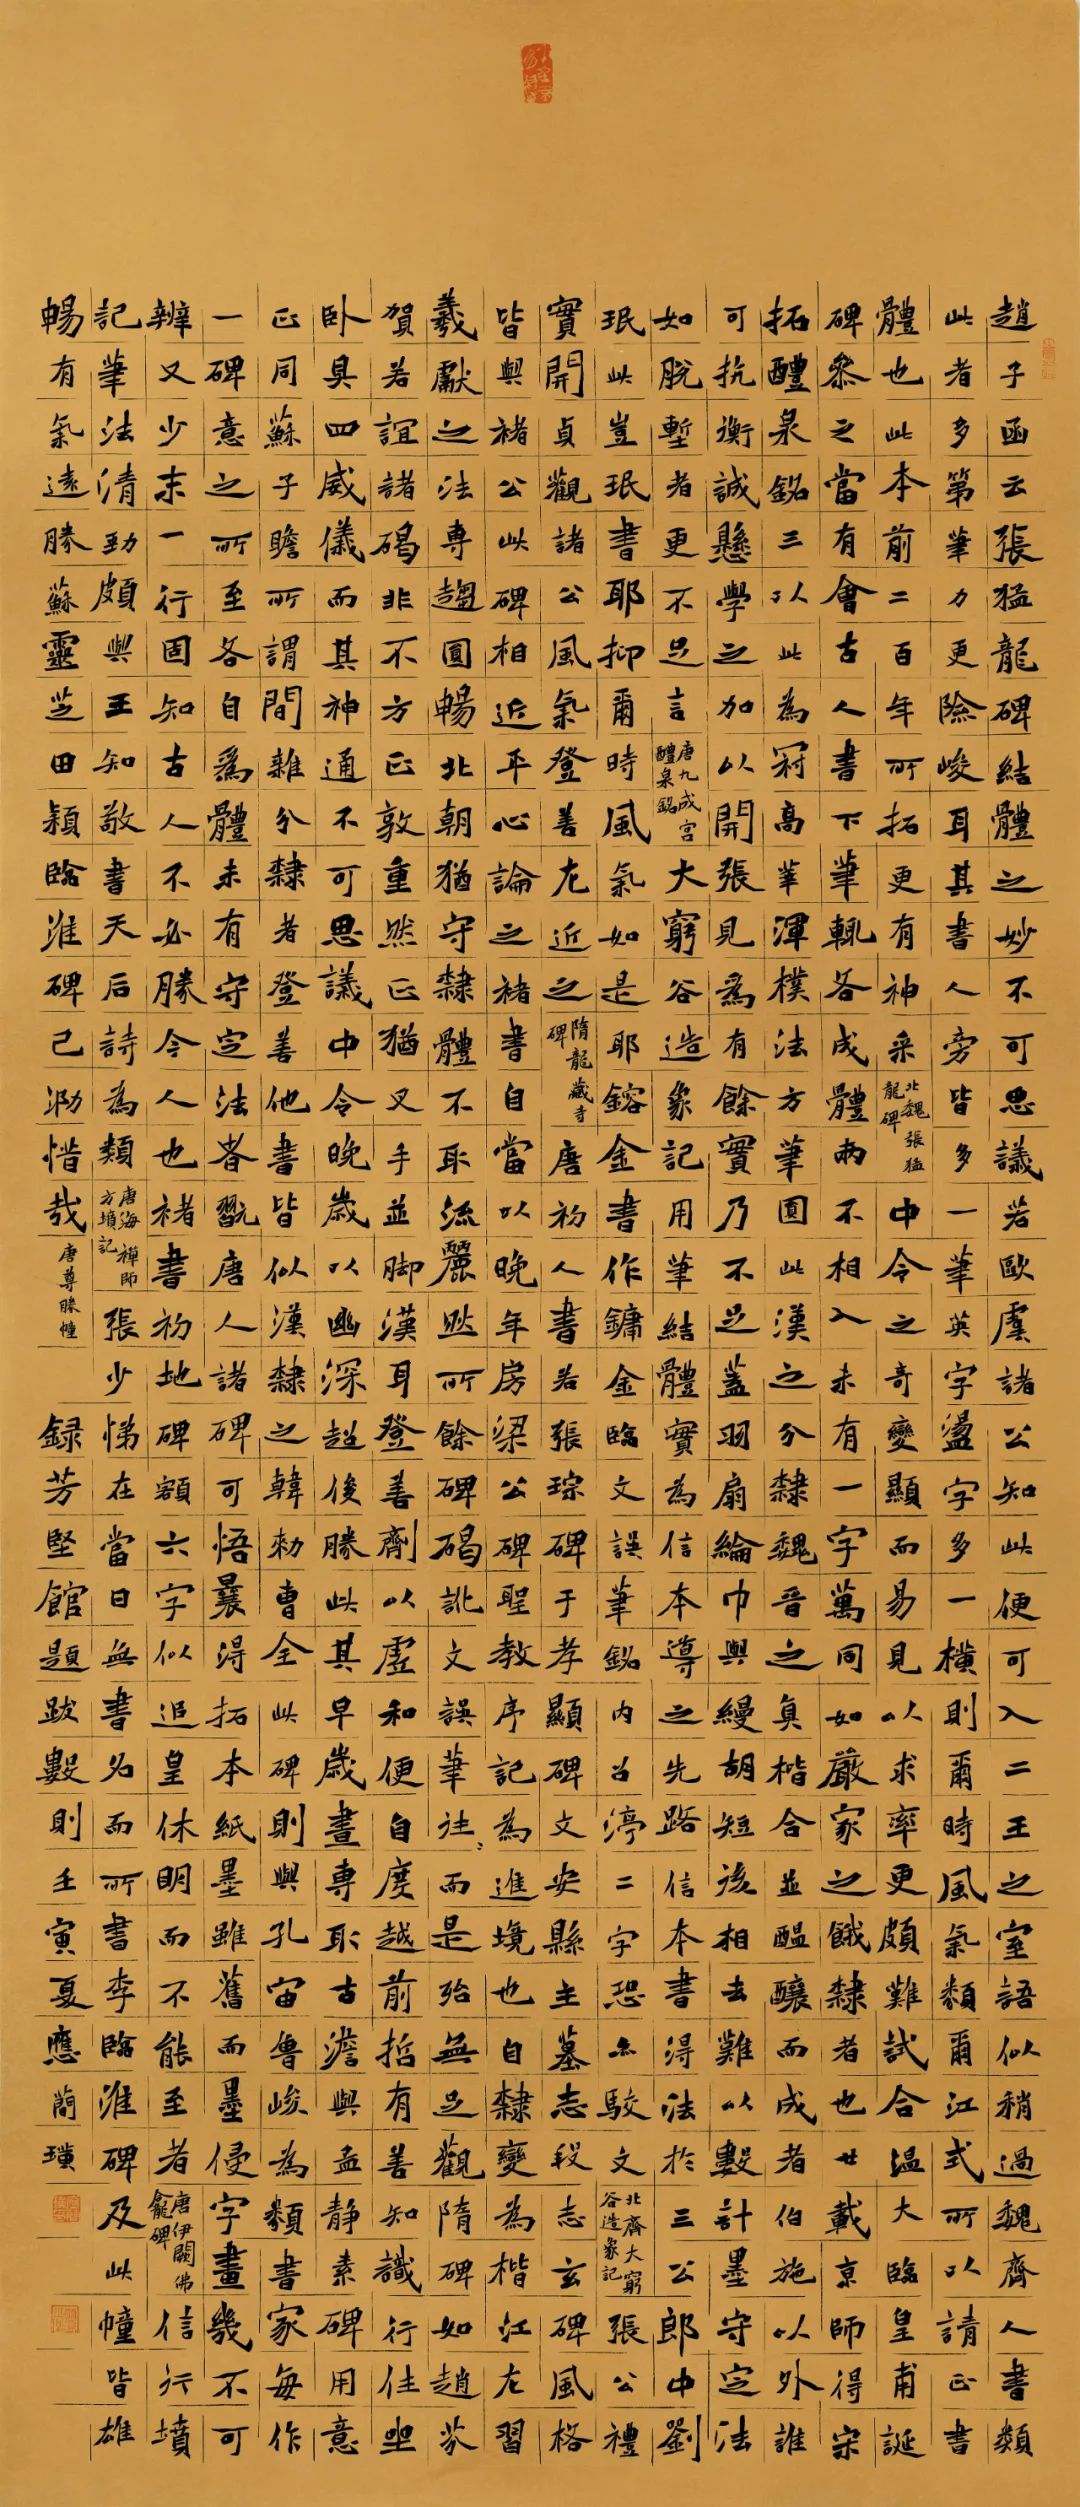 趙子函云張猛龍碑結體之妙不可思議若歐虞諸公知此便可入二王之室語似稍過魏齊人書類
此者多第筆力更險峻耳其書人旁皆多一筆英字盪字多一橫則爾時風氣類爾江式所以請正書
體也此本前二百年所拓更有神采北魏張猛龍碑中令之奇變顯而易見以求率更頗難試合溫大臨皇甫誕
碑叅之當有會古人書下筆輒各成體兩不相入未有一字萬同如嚴家之餓隸者也廿載京師得宋
拓醴泉銘三以此為冠高華渾樸法方筆圓此漢之分隸魏晉之真楷合並醞釀而成者伯施以外誰
可抗衡誠懸學之加以開張見為有餘實乃不足蓋羽扇綸巾與縵胡短後相去難以數計墨守定法
如脫塹者更不足言唐九成宮醴泉銘大窮谷造象記用筆結體實為信本導之先路信本書得法於三公郎中劉
珉此豈珉書耶抑爾時風氣如是耶鎔金書作鏞金臨文誤筆銘內召渟二字恐亦駮文北齊大窮谷造象記張公禮
實開貞觀諸公風氣登善尤近之隋龍藏寺碑唐初人書若張琮碑于孝顯碑文安縣主墓志段志玄碑風格
皆與褚公此碑相近平心論之褚書自當以晚年房梁公碑聖教序記為進境也自隸變為楷江左習
羲獻之法專趨圓暢北朝猶守隸體不取流麗然所餘碑碣訛文誤筆往〻而是殆無足觀隋碑如趙芬
賀若誼諸碣非不方正敦重然正猶叉手並脚漢耳登善劑以虛和便自度越前哲有善知識行住坐
卧具四威儀而其神通不可思議中令晚歲以幽深超後勝此其早歲畫專取古澹與孟靜素碑用意
正同蘇子瞻所謂間雜分隸者登善他書皆似漢隸之韓勑曹全此碑則與孔宙魯峻為類書家每作
一碑意之所至各自為體未有守定法者翫唐人諸碑可悟曩得拓本紙墨雖舊而墨侵字畫幾不可
辨又少末一行固知古人不必勝今人也褚書初地碑額六字似追皇休明而不能至者唐伊闕佛龕碑信行墳
記筆法清勁頗與王知敬書天后詩為類唐海禪師方墳記張少悌在當日無書名而所書李臨淮碑及此幢皆雄
暢有氣遠勝蘇靈芝田穎臨淮碑已泐惜哉唐尊勝幢録芳堅館題跋數則壬寅夏應蘭璜